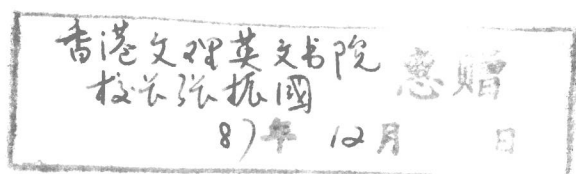 香港文理英文书院
校长张振國 惠赠
87年 12月 日